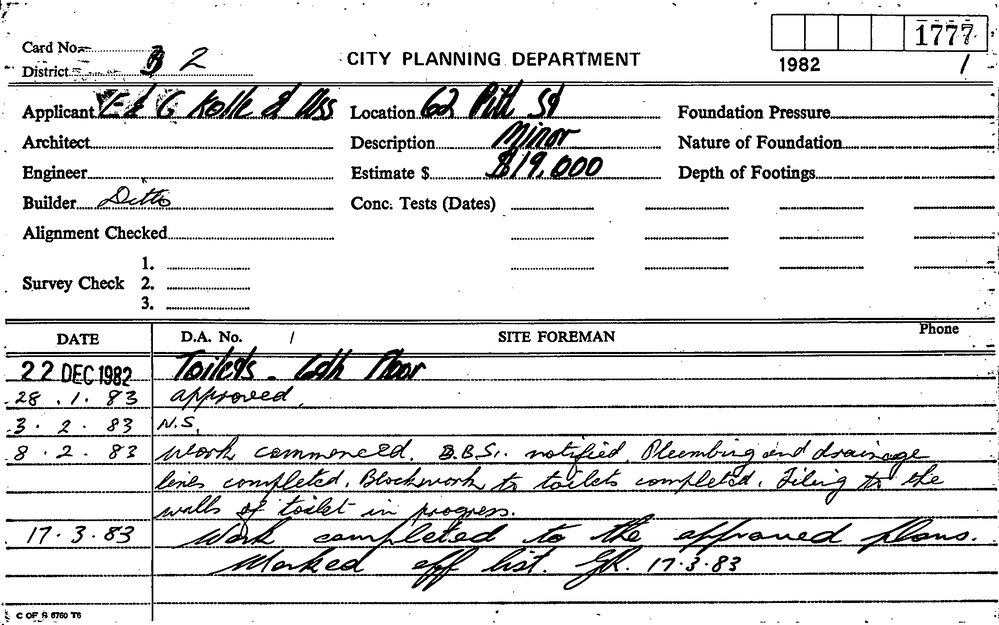 1777
Card No.
District B 2
CITY PLANNING DEPARTMENT
1982 /
Applicant E & G Kolle & Ass
Location 62 Pitt St
Foundation Pressure
Architect
Description Minor
Nature of Foundation
Engineer
Estimate $ $19,000
Depth of Footings
Builder Ditto
Conc. Tests (Dates)
Alignment Checked
1.
Survey Check 2.
3.
DATE
D.A. No. /
SITE FOREMAN
Phone
22 DEC 1982 Toilets - 6th Floor
28 . 1 . 83 approved.
3 . 2 . 83 N.S.
8 . 2 . 83 Work commenced. B.B.S. notified. Plumbing and drainage
lines completed. Blockwork to toilets completed. Tiling to the
walls of toilet in progress.
17 . 3 . 83 Work completed to the approved plans.
Marked off list. GR. 17.3.83
C OF S 6760 T6